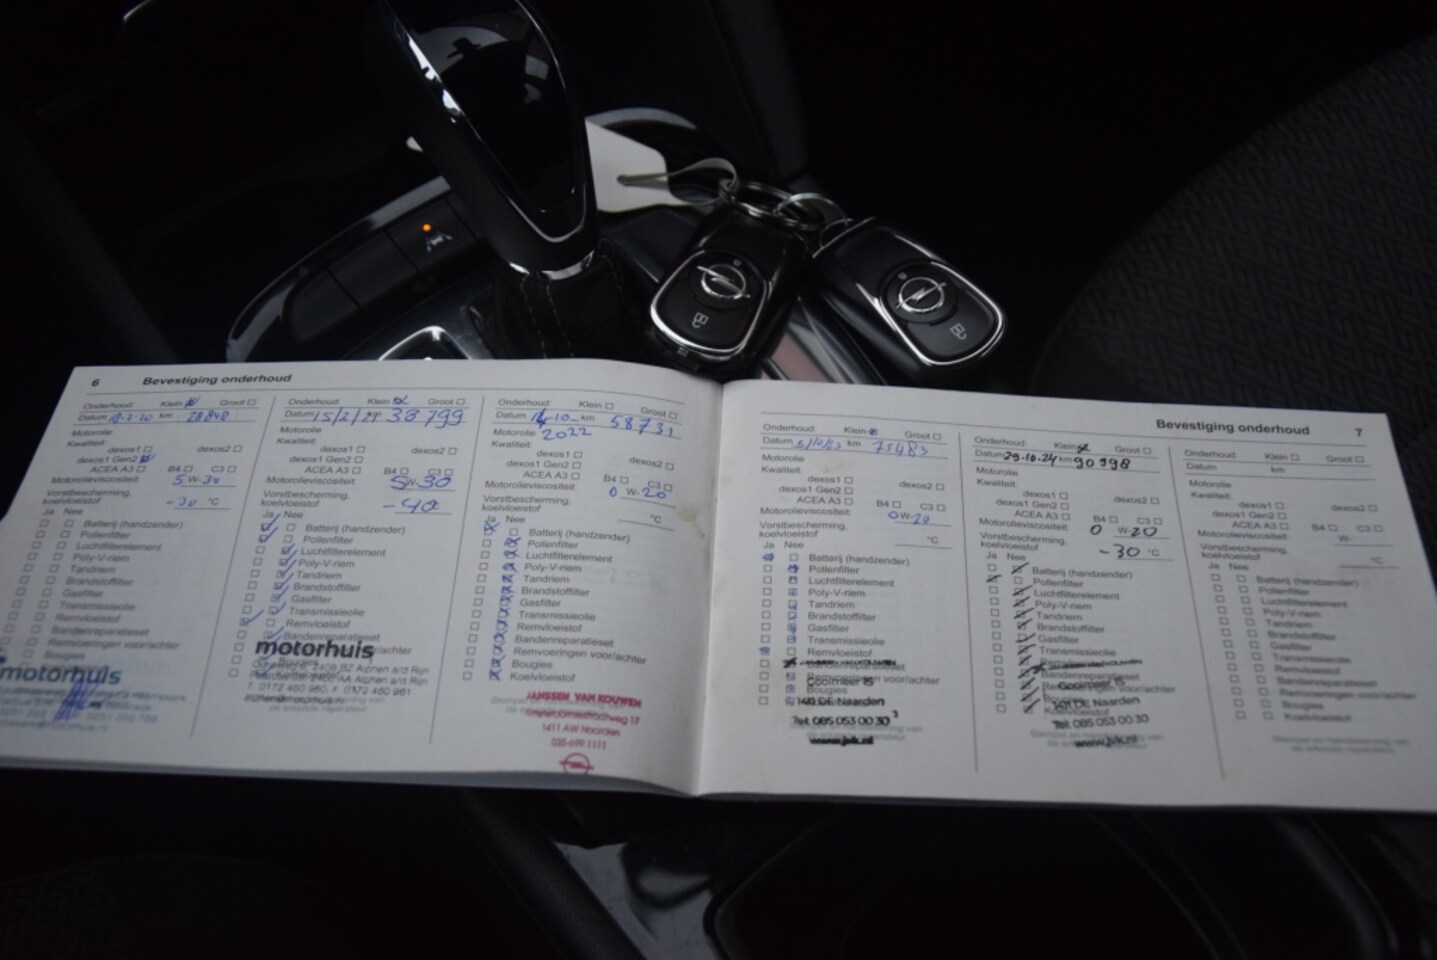 6 Bevestiging onderhoud
Onderhoud: Klein Groot
Datum 18-2-20 km 28848
Motorolie
Kwaliteit:
dexos1
dexos1 Gen2 dexos2
ACEA A3 B4 C3
Motorolieviscositeit: 5 W-30
Vorstbescherming,
koelvloeistof -30 °C
Ja Nee
Batterij (handzender)
Pollenfilter
Luchtfilterelement
Poly-V-riem
Tandriem
Brandstoffilter
Gasfilter
Transmissieolie
Remvloeistof
Bandenreparatieset
Bougies
motorhuis
Onderhoud: Klein Groot
Datum 15/2/21 km 38799
Motorolie
Kwaliteit:
dexos1
dexos1 Gen2 dexos2
ACEA A3 B4 C3
Motorolieviscositeit: 5W-30
Vorstbescherming,
koelvloeistof -40
Ja Nee
Batterij (handzender)
Pollenfilter
Luchtfilterelement
Poly-V-riem
Tandriem
Brandstoffilter
Gasfilter
Transmissieolie
Remvloeistof
Bandenreparatieset
motorhuis
2408 BZ Alphen a/d Rijn
2400 AA Alphen a/d Rijn
T. 0172 460 960, F. 0172 460 961
alphen@motorhuis.nl
Onderhoud: Klein Groot
Datum 14-10- km 58731
Motorolie 2022
Kwaliteit:
dexos1
dexos1 Gen2 dexos2
ACEA A3 B4 C3
Motorolieviscositeit: 0 W-20
Vorstbescherming,
koelvloeistof °C
Ja Nee
Batterij (handzender)
Pollenfilter
Luchtfilterelement
Poly-V-riem
Tandriem
Brandstoffilter
Gasfilter
Transmissieolie
Remvloeistof
Bandenreparatieset
Remvoeringen voor/achter
Bougies
Koelvloeistof
JANSSEN VAN KOUWEN
Amsterdamsestraatweg 17
1411 AW Naarden
035-699 1111
Bevestiging onderhoud 7
Onderhoud: Klein Groot
Datum km 75483
Motorolie
Kwaliteit:
dexos1
dexos1 Gen2 dexos2
ACEA A3 B4 C3
Motorolieviscositeit: 0W-20
Vorstbescherming,
koelvloeistof °C
Ja Nee
Batterij (handzender)
Pollenfilter
Luchtfilterelement
Poly-V-riem
Tandriem
Brandstoffilter
Gasfilter
Transmissieolie
Remvloeistof
Bandenreparatieset
Gooimeer 15
Bougies
DE Naarden
Tel: 085 053 00 30
www.jvk.nl
Onderhoud: Klein Groot
Datum 29.10.24 km 90998
Motorolie
Kwaliteit:
dexos1
dexos1 Gen2 dexos2
ACEA A3 B4 C3
Motorolieviscositeit: 0 W-20
Vorstbescherming,
koelvloeistof -30 °C
Ja Nee
Batterij (handzender)
Pollenfilter
Luchtfilterelement
Poly-V-riem
Tandriem
Brandstoffilter
Gasfilter
Transmissieolie
Bandenreparatieset
Gooimeer 15
DE Naarden
Tel: 085 053 00 30
www.jvk.nl
Onderhoud: Klein Groot
Datum km
Motorolie
Kwaliteit:
dexos1
dexos1 Gen2 dexos2
ACEA A3 B4 C3
Motorolieviscositeit: W-
Vorstbescherming,
koelvloeistof °C
Ja Nee
Batterij (handzender)
Pollenfilter
Luchtfilterelement
Poly-V-riem
Tandriem
Brandstoffilter
Gasfilter
Transmissieolie
Remvloeistof
Bandenreparatieset
Remvoeringen voor/achter
Bougies
Koelvloeistof
Stempel en handtekening van
de erkende reparateur